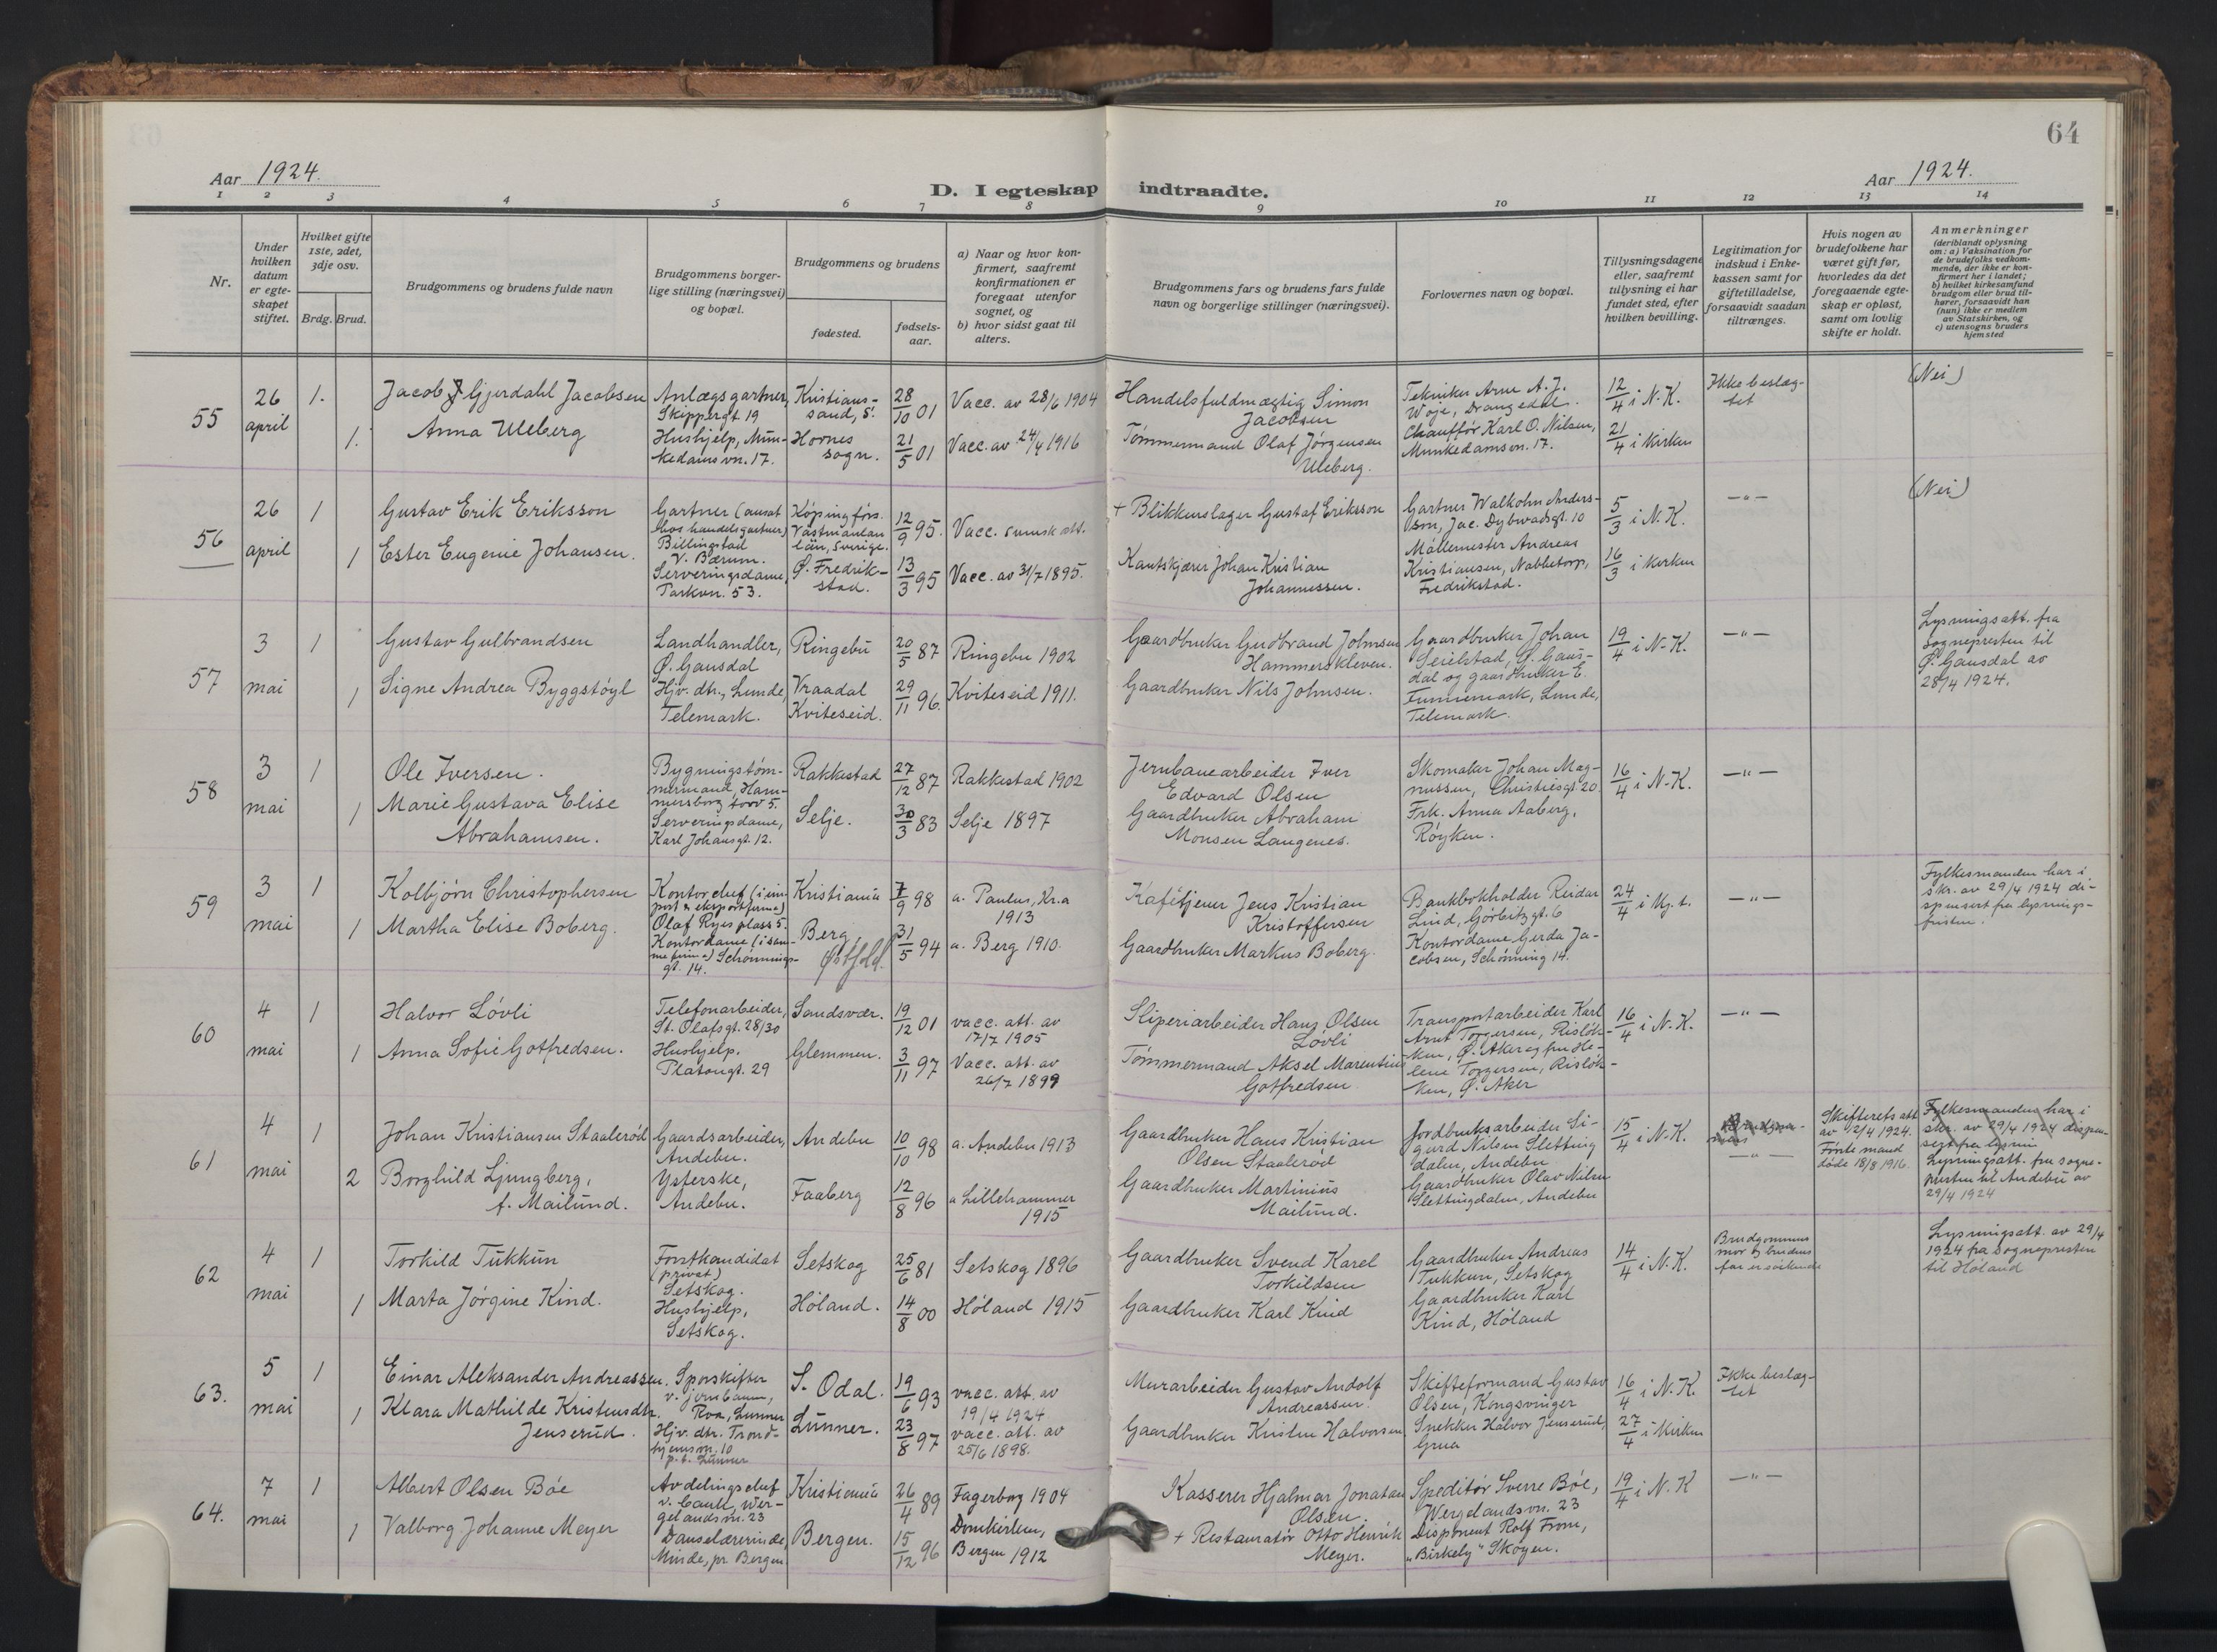 64
Aar 1924.
Aar 1924.
D. I egteskap indtraadte.
1 2 3 4 5 6 7 8 9 10 11 12 13 14
Nr.
Under hvilken datum er egte-skapet stiftet.
Hvilket gifte 1ste, 2det, 3dje osv.
Brdg. Brud.
Brudgommens og brudens fulde navn
Brudgommens borger-lige stilling (næringsvei) og bopæl.
Brudgommens og brudens
fødested.
fødsels-aar.
a) Naar og hvor kon-firmert, saafremt konfirmationen er foregaat utenfor sognet, og
b) hvor sidst gaat til alters.
Brudgommens fars og brudens fars fulde navn og borgerlige stillinger (næringsvei).
Forlovernes navn og bopæl.
Tillysningsdagene eller, saafremt tillysning ei har fundet sted, efter hvilken bevilling.
Legitimation for indskud i Enke-kassen samt for giftetilladelse, forsaavidt saadan tiltrænges.
Hvis nogen av brudefolkene har været gift før, hvorledes da det foregaaende egte-skap er opløst, samt om lovlig skifte er holdt.
Anmerkninger (deriblandt oplysning om: a) Vaksination for de brudefolks vedkom-mende, der ikke er kon-firmert her i landet; b) hvilket kirkesamfund brudgom eller brud til-hører, forsaavidt han (hun) ikke er medlem av Statskirken, og c) utensogns bruders hjemsted
55
26 april
1.
1.
Jacob Gjerdahl Jacobsen
Anna Uleberg
Anlægsgartner,
Skippergt. 19
Hushjelp, Mun-
kedamsvn. 17.
Kristians-
sand, S.
Hornes
sogn.
28/10 01
21/5 01
Vacc. av 28/6 1904
Vacc. av 24/4 1916
Handelsfuldmægtig Simon
Jacobsen
Tømmermand Olaf Jørgensen
Uleberg.
Tekniker Arne A. J.
Woje, Drangedal.
Chauffør Karl O. Nilsen,
Munkedamsvn. 17.
12/4 i N. K.
21/4 i kirken
Ikke beslæg-
tet
(Nei)
56
26 april
1
1
Gustav Erik Eriksson
Ester Eugenie Johansen.
Gartner (ansat
hos handelsgartner)
Billingstad
V. Bærum.
Serveringsdame,
Parkvn. 53.
Köping förs.
Västmanlan
län, Sverige.
G. Fredrik-
stad.
12/9 95.
13/3 95
Vacc. svensk att.
Vacc. av 31/7 1895.
+ Blikkenslager Gustaf Eriksson
Kantskjærer Johan Kristian
Johannessen.
Gartner Walkolm Anders-
son, Jac. Dybwadsgt. 10
Møllemester Andreas
Kristiansen, Nabbetorp,
Fredrikstad.
5/3 i N. K.
16/3 i kirken
—"—
(Nei)
57
3 mai
1
1
Gustav Gulbrandsen
Signe Andrea Byggstøyl
Landhandler,
Ø. Gausdal
Hjv. dtr., Lunde,
Telemark.
Ringebu
Vraadal
Kviteseid.
20/5 87
29/11 96.
Ringebu 1902
Kviteseid 1911.
Gaardbruker Gudbrand Johnsen
Hammerskleven.
Gaardbruker Nils Johnsen.
Gaardbruker Johan
Seielstad, Ø. Gaus-
dal og gaardbruker E.
Funnemark, Lunde,
Telemark.
19/4 i N-K.
—"—
Lysningsatt. fra
sognepresten til
Ø. Gausdal av
28/4 1924.
58
3 mai
1
1
Ole Iversen.
Marie Gustava Elise
Abrahamsen.
Bygningstøm-
mermand, Ham-
mersborg torv 5.
Serveringsdame,
Karl Johansgt. 12.
Rakkestad
Selje.
27/12 87
30/3 83
Rakkestad 1902
Selje 1897
Jernbanearbeider Iver
Edvard Olsen
Gaardbruker Abraham
Monsen Langenes.
Skomaker Johan Mag-
nussen, Christiesgt. 20.
Frk. Anna Aaberg,
Røyken.
16/4 i N-K.
—"—
59
3 mai
1
1
Kolbjørn Christophersen
Martha Elise Boberg.
Kontorchef (i im-
port & eksportfirma)
Olaf Ryes plass 5.
Kontordame (i sam-
me firma) Schønnings-
gt. 14.
Kristiania
Berg
Østfold.
7/9 98
31/5 94
a. Paulus, Kr.a
1913
a. Berg 1910.
Kafétjener Jens Kristian
Kristoffersen
Gaardbruker Markus Boberg.
Bankbokholder Reidar
Lind, Gørbitzgt. 6
Kontordame Gerda Ja-
cobsen, Schønning 14.
24/4 i Mg. t.
—"—
Fylkesmanden har i
skr. av 29/4 1924 di-
spensert fra lysnings-
fristen.
60
4 mai
1
1
Halvor Løvli
Anna Sofie Gotfredsen.
Telefonarbeider,
St. Olafsgt. 28/30
Hushjelp.
Platousgt. 29
Sandsvær.
Glemmen.
19/12 01
3/11 97
vacc. att. av
17/7 1905
Vacc. att. av
26/7 1899
Sliperiarbeider Hans Olsen
Løvli
Tømmermand Aksel Marentius
Gotfredsen
Transportarbeider Karl
Arnt Torgersen, Risløk-
ken, Ø. Aker og fru He-
lene Torgersen, Risløk-
ken, Ø. Aker
16/4 i N. K.
—"—
61
4 mai
1
2
Johan Kristiansen Staalerød
Borghild Ljungberg,
f. Mailund.
Gaardsarbeider,
Andebu.
Ysterske,
Andebu.
Andebu
Faaberg
10/10 98
12/8 96
a. Andebu 1913
a Lillehammer
1915
Gaardbruker Hans Kristian
Olsen Staalerød
Gaardbruker Martinius
Mailund.
Jordbruksarbeider Si-
gurd Nilsen Sletting
dalen, Andebu
Gaardbruker Olav Nilsen
Slettingdalen, Andebu
15/4 i N. K.
—"—
Skifterets att
av 12/4 1924.
Første mand
døde 18/8 1916.
Fylkesmanden har i
skr. av 29/4 1924 dispen-
sert fra lysnin
Lysningsatt. fra sogne-
presten til Andebu av
29/4 1924
62
4 mai
1
1
Torkild Tukkun
Marta Jørgine Kind.
Forstkandidat
(privat)
Setskog.
Hushjelp,
Setskog.
Setskog
Høland.
25/6 81
14/8 00
Setskog 1896
Høland 1915
Gaardbruker Svend Karel
Torkildsen
Gaardbruker Karl Kind
Gaardbruker Andreas
Tukkun, Setskog
Gaardbruker Karl
Kind, Høland
14/4 i N. K.
Brudgommens
mor og brudens
far er søskende
Lysningsatt. av 29/4
1924 fra sognepresten
til Høland
63.
5 mai
1
1
Einar Aleksander Andreassen.
Klara Mathilde Kristensdtr.
Jenserud.
Sporskifter
v. jernbanen,
Roa, Lunner
Hjv. dtr. Trond-
hjemsvn. 10
p. t. Lunner
S. Odal.
Lunner.
19/6 93
23/8 97
vacc. att. av
19/4 1924
vacc. att. av
25/6 1898.
Murarbeider Gustav Andolf
Andreassen.
Gaardbruker Kristen Halvorsen
Skifteformand Gustav
Olsen, Kongsvinger
Snekker Halvor Jenserud,
Grua
16/4 i N. K.
27/4 i kirken
Ikke beslæg-
tet
64.
7 mai
1
1
Albert Olsen Bøe
Valborg Johanne Meyer
Avdelingschef
v. bank, Wer-
gelandsvn. 23
Danselærerinde,
Minde, pr. Bergen
Kristiania
Bergen.
26/4 89
15/12 96
Fagerborg 1904
Domkirken,
Bergen 1912
Kasserer Hjalmar Jonatan
Olsen.
+ Restauratør Otto Henrik
Meyer.
Speditør Sverre Bøe,
Wergelandsvn. 23
Disponent Rolf From,
"Birkely" Skøyen.
19/4 i N. K
—"—